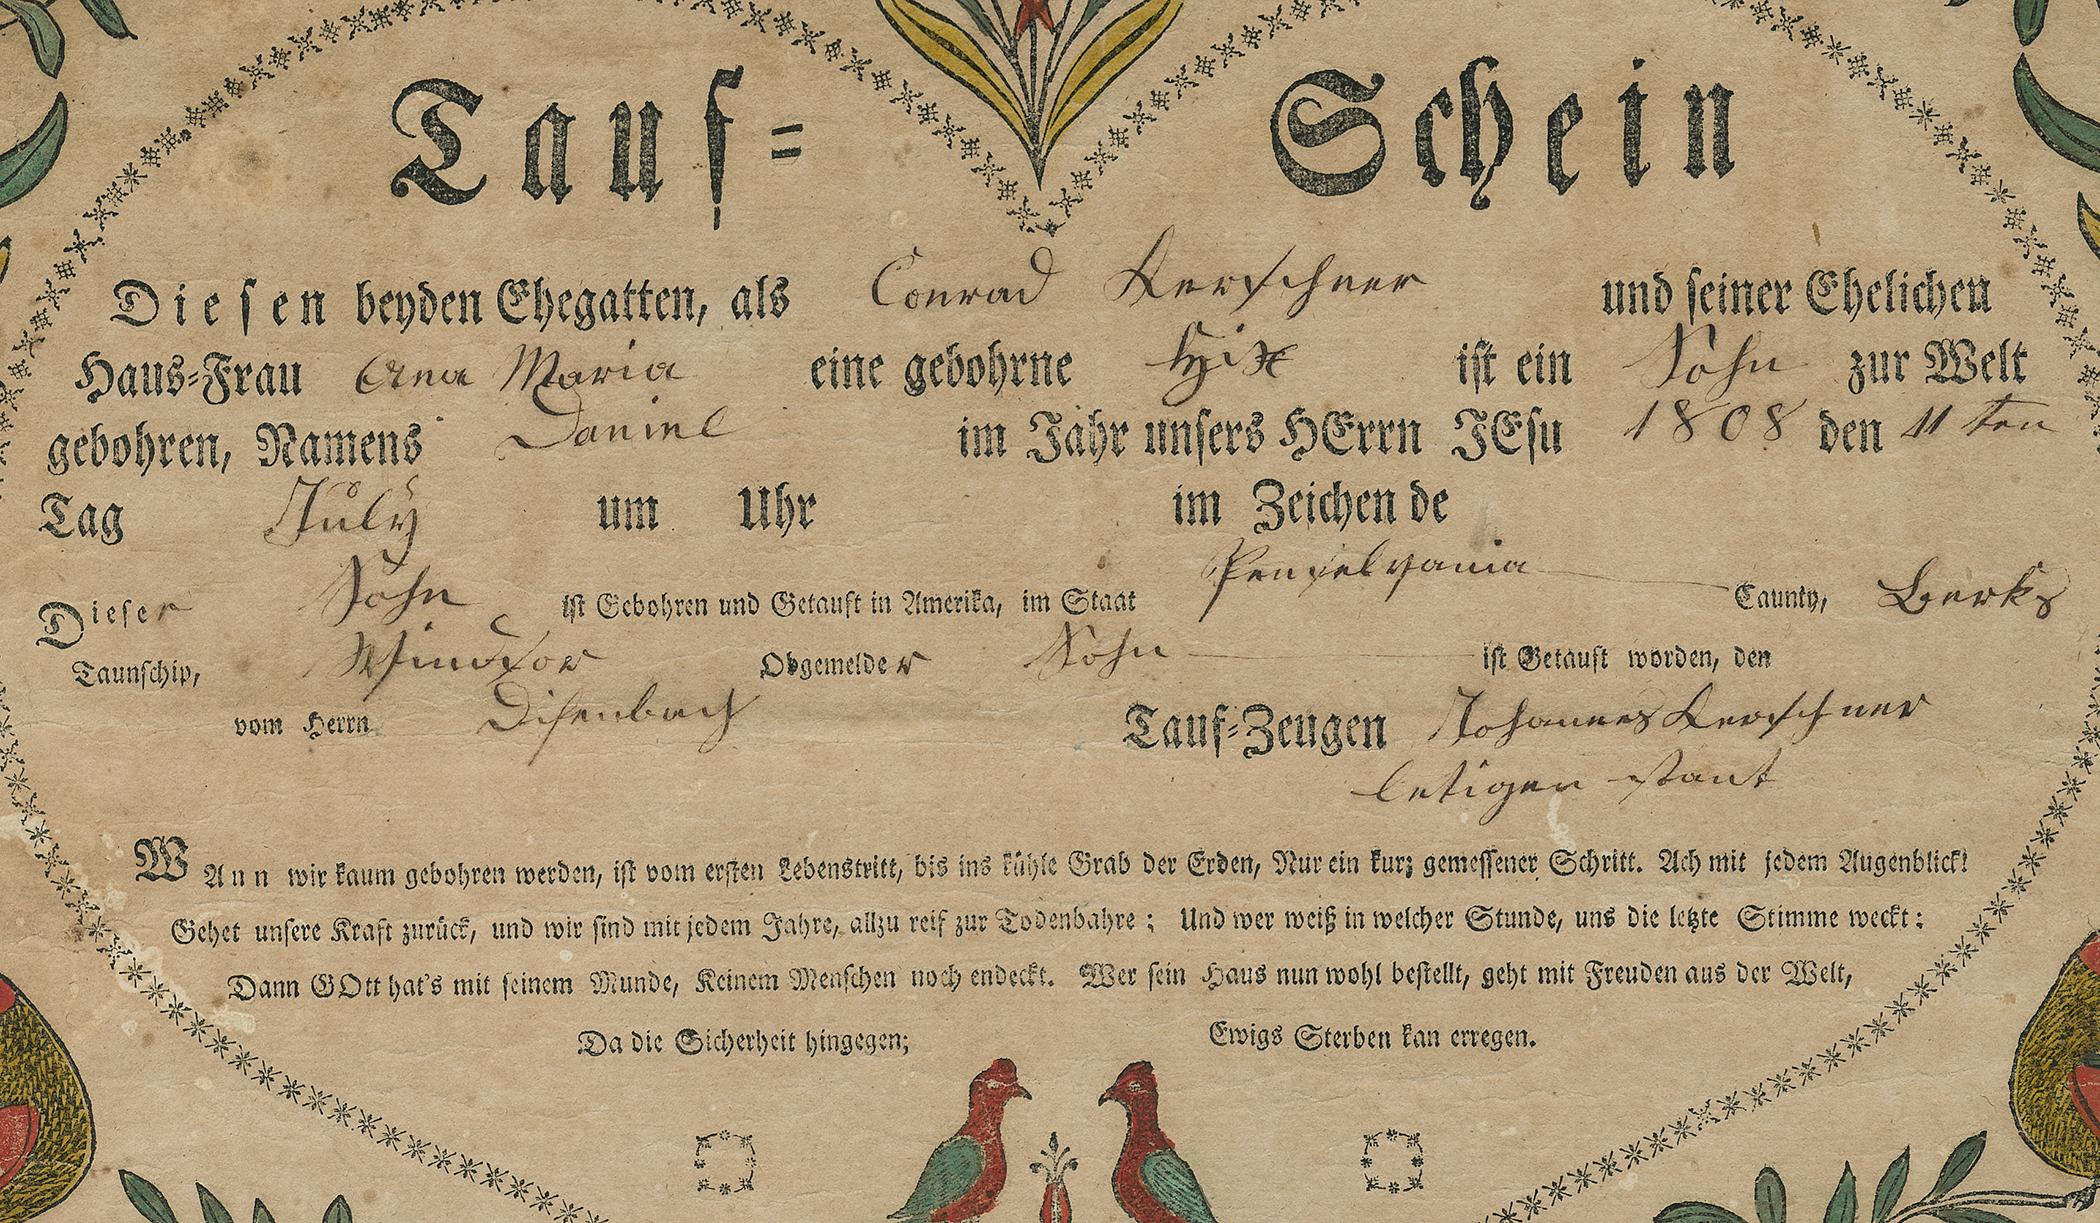 Tauf= Schein
Diesen beyden Ehegatten, als Conrad Kerschner und seiner Ehelichen
Haus-Frau Ana Maria eine gebohrne Hix ist ein Sohn zur Welt
gebohren, Namens Daniel im Jahr unsers HErrn JEsu 1808 den 11 ten
Tag July um Uhr im Zeichen de
Dieser Sohn ist Gebohren und Getauft in Amerika, im Staat Penselvania Caunty, Berks
Taunschip, Windsor Obgemelder Sohn ist Getauft worden, den
vom Herrn Disenbach Tauf-Zeugen Johannes Kerschner
letigen stant
WAnn wir kaum gebohren werden, ist vom ersten Lebenstritt, bis ins kühle Grab der Erden, Nur ein kurz gemessener Schritt. Ach mit jedem Augenblick!
Gehet unsere Kraft zurück, und wir sind mit jedem Jahre, allzu reif zur Todenbahre; Und wer weiß in welcher Stunde, uns die letzte Stimme weckt:
Dann GOtt hat's mit seinem Munde, Keinem Menschen noch endeckt. Wer sein Haus nun wohl bestellt, geht mit Freuden aus der Welt,
Da die Sicherheit hingegen; Ewigs Sterben kan erregen.